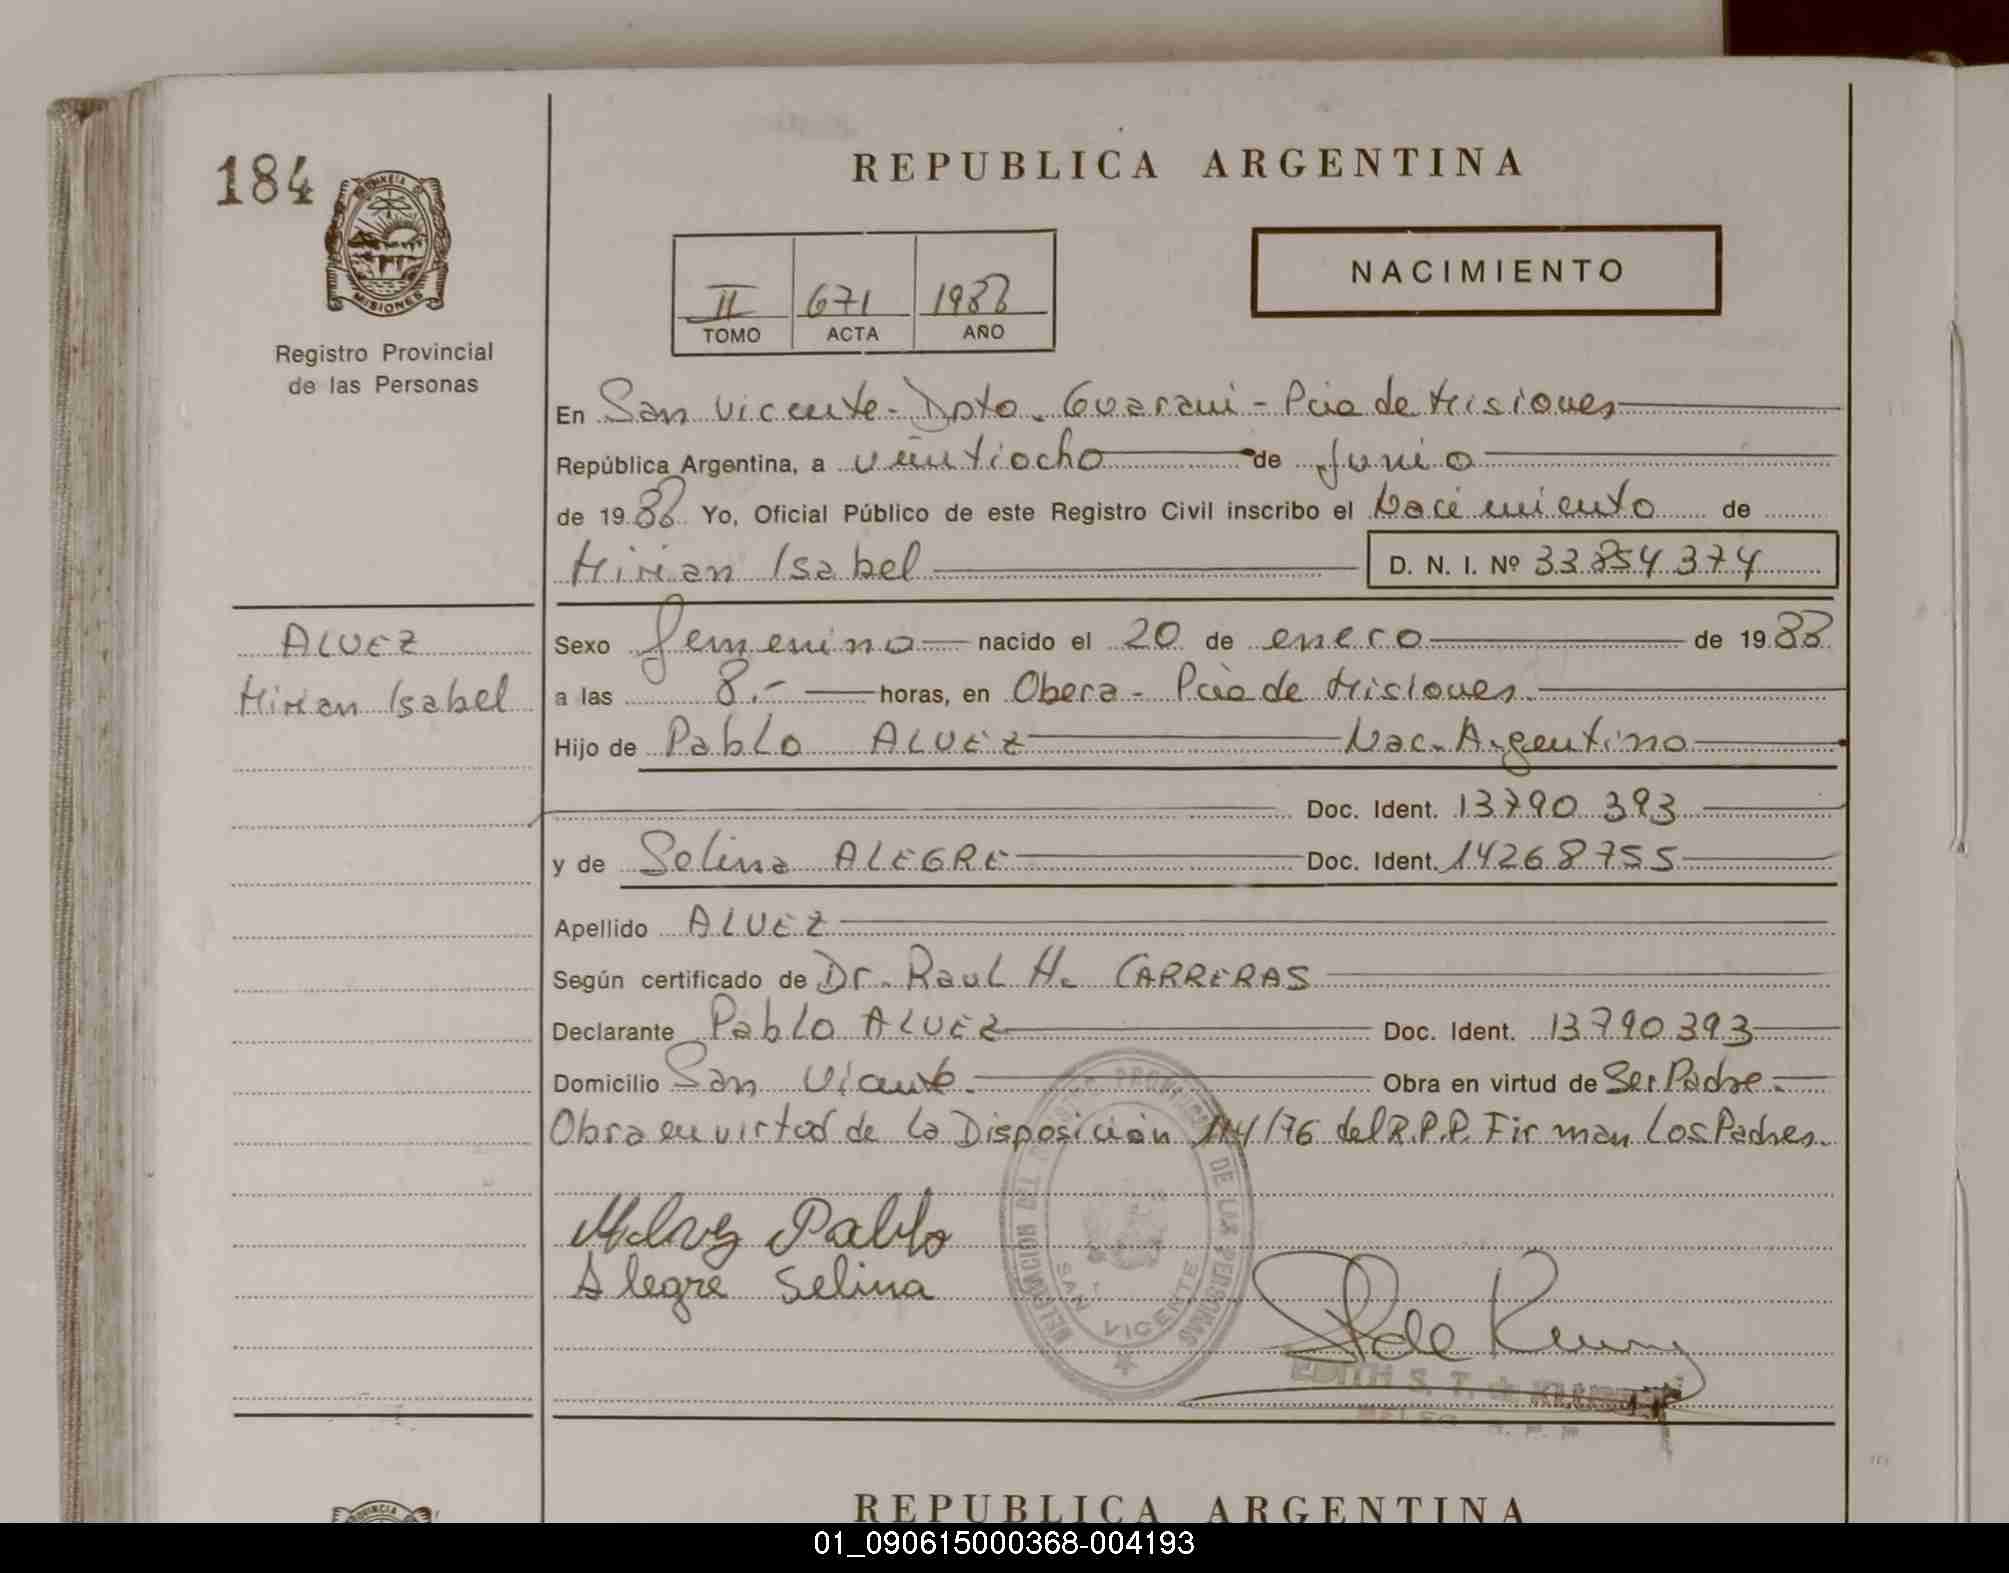 184
REPUBLICA ARGENTINA
PROVINCIA DE
MISIONES
NACIMIENTO
II 671 1988
TOMO ACTA AÑO
Registro Provincial
de las Personas
En San Vicente - Dpto. Guarani - Pcia de Misiones
República Argentina, a veintiocho de Junio
de 1988 Yo, Oficial Público de este Registro Civil inscribo el Nacimiento de
Mirian Isabel D. N. I. Nº 33.854.374
ALVEZ
Mirian Isabel
Sexo femenino nacido el 20 de enero de 1988
a las 8.- horas, en Obera - Pcia de Misiones
Hijo de Pablo ALVEZ Nac. Argentino
Doc. Ident. 13790393
y de Selina ALEGRE Doc. Ident. 14268755
Apellido ALVEZ
Según certificado de Dr. Raul H. CARRERAS
Declarante Pablo ALVEZ Doc. Ident. 13790393
Domicilio San Vicente. Obra en virtud de Ser Padre.
Obra en virtud de la Disposición 114/76 del R.P.P. Firman Los Padres.
Alvez Pablo
Alegre Selina
DELEGACION DEL REGISTRO PROVINCIAL DE LAS PERSONAS
SAN VICENTE
EDITH S. T. de
REPUBLICA ARGENTINA
PROVINCIA
01_090615000368-004193